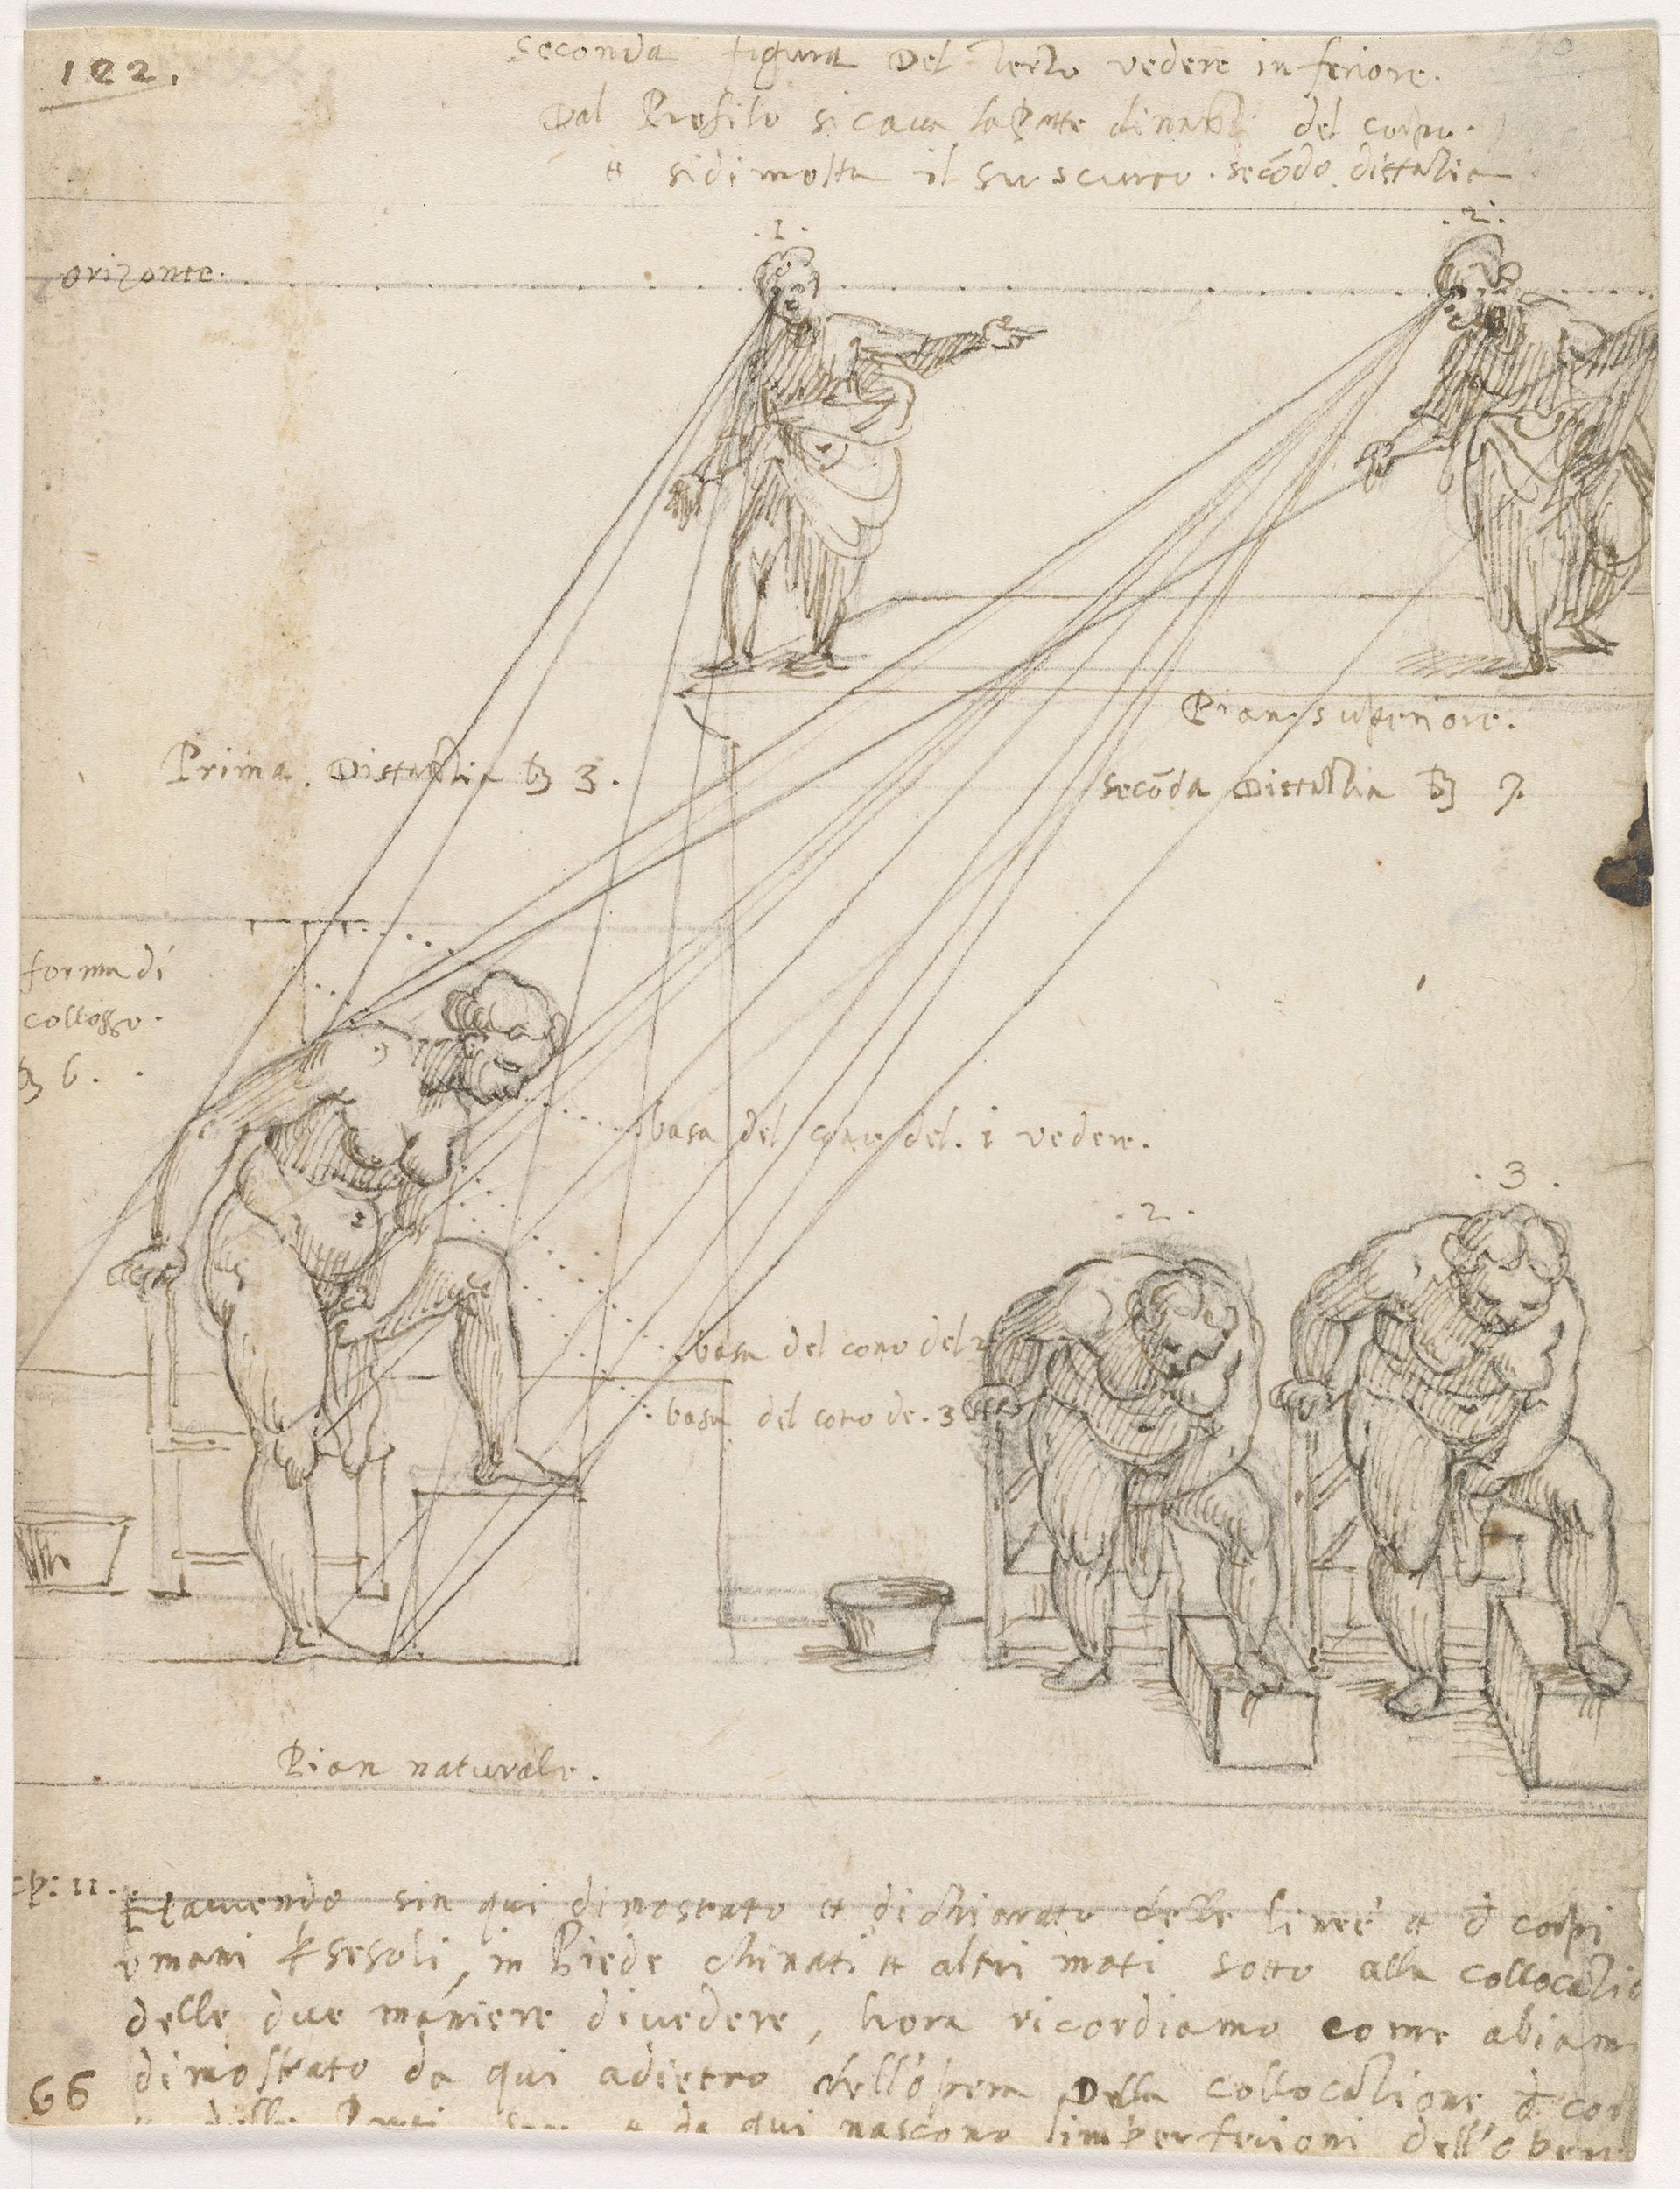 122.
Seconda figura Del terzo vedere inferiore.
Dal Profilo si caua la dinanzi del corpo.
et si dimostra il su scurto. secōdo. distatia
.1.
.2.
orizonte.
Pian. superiore.
Prima. Distantia 3.
Secōda Distantia 7.
forma di
collosso.
6.
basa del cono del. 1 vedere.
.2.
.3.
basa del cono del 2
basa del cono de. 3
Pian naturale.
cp: 11.
Hauuendo sin qui dimostrato et dichiarato delle linee et d corpi
vmani sesoli, in Piede chinati et altri moti sotto alla
delle due maniere di uedere, hora ricordiamo come abiam
dimostrato da qui adietro dell'opera Della collocatione d cor
66
et da qui nascono limperfetioni dell'